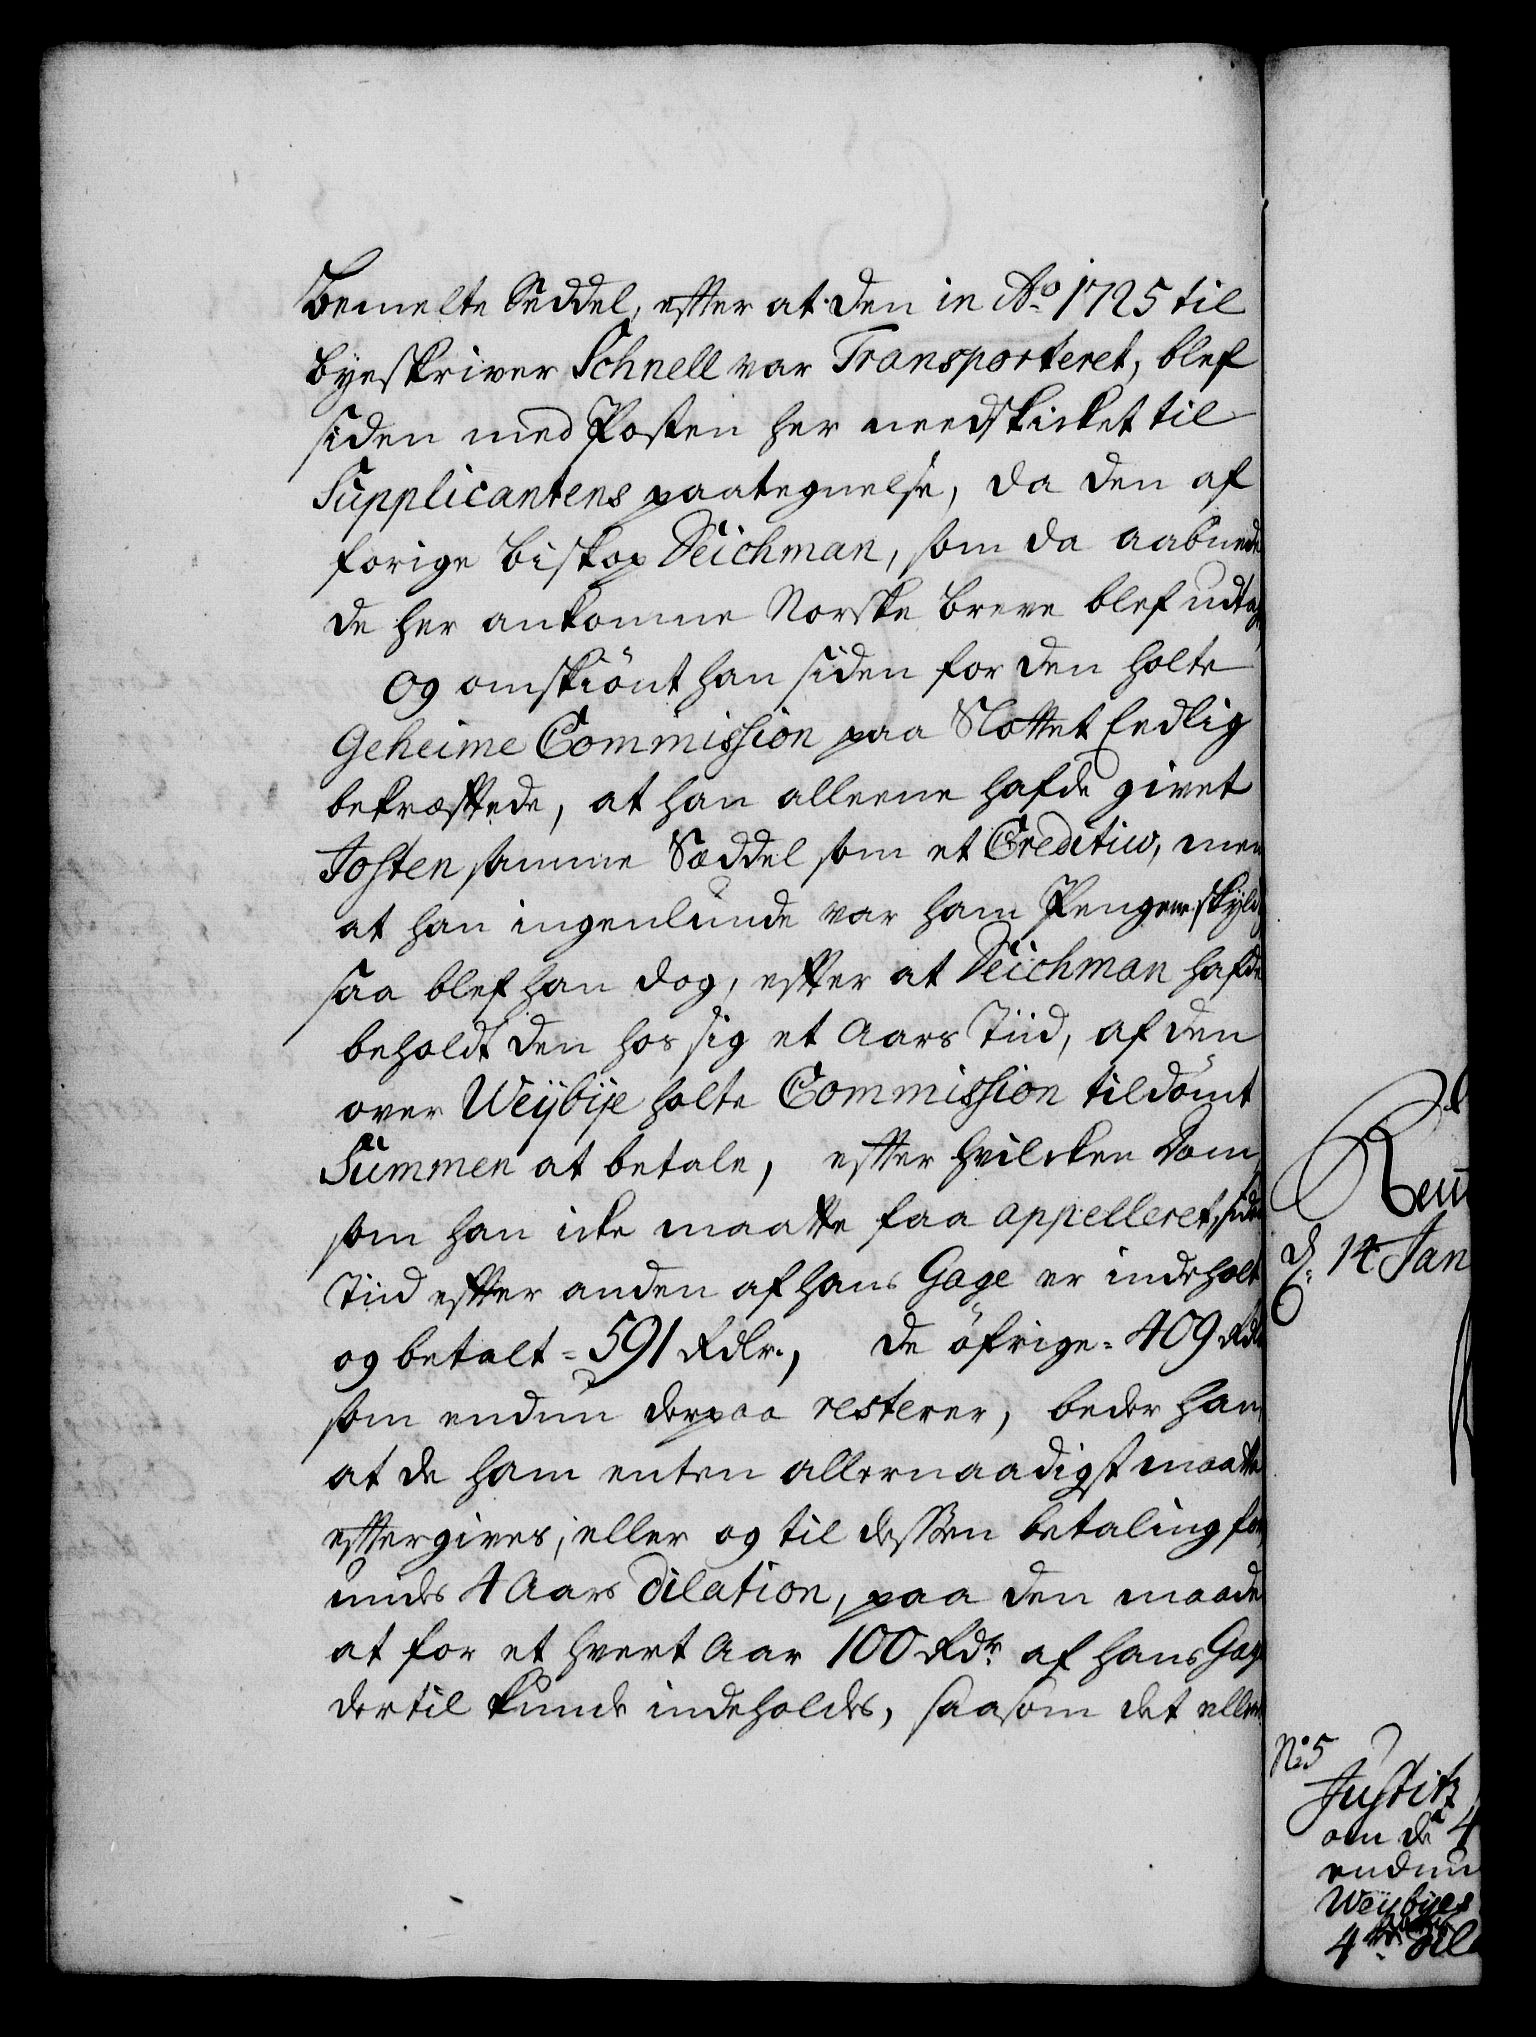 Bemelte Seddel, efter at den in Ao. 1725 til
Byeskriver Schnell var Transporteret, blef
siden med Posten her needskicket til
Supplicantens paategnelse, da den af
forige Biskop Deichman, som da aabnede
de her ankomne Norske Breve blef udtag
Og omskiönt han siden for den holte
Geheime Commission paa Slottet Eedlig
bekræftede, at han alleene hafde givet
Josten samme Sæddel som et Creditiv, men
at han ingenlunde var ham Pengene skyld
saa blef han dog, efter at Deichman hafde
beholdt den hos sig et Aars Tiid, af den
over Weÿbÿe holte Commission tildömt
Summen at betale, efter hvilcken Dom
som han icke maatte faa appelleret, siden
Tiid efter anden af hans Gage er indeholt
og betalt = 591 Rdlr., de öfrige = 409 Rdlr
som endnu derpaa resterer, beder han
at de ham enten allernaadigst maatte
eftergives, eller og til dessen betaling for
undes 4 Aars Dilation, paa den maade
at for et hvert Aar 100 Rdr. af hans Gage
dertil kunde indeholdes, saasom det eller
d. 14 Jan
No. 5
Justitz
om de 4
endnu
Weÿbÿes
4 dil